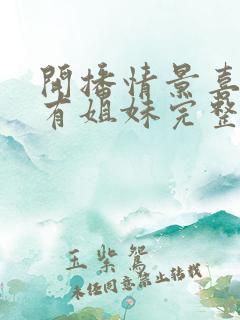 開播情景喜
有姐妹完整
玉紫鴛
未经同意禁止转载